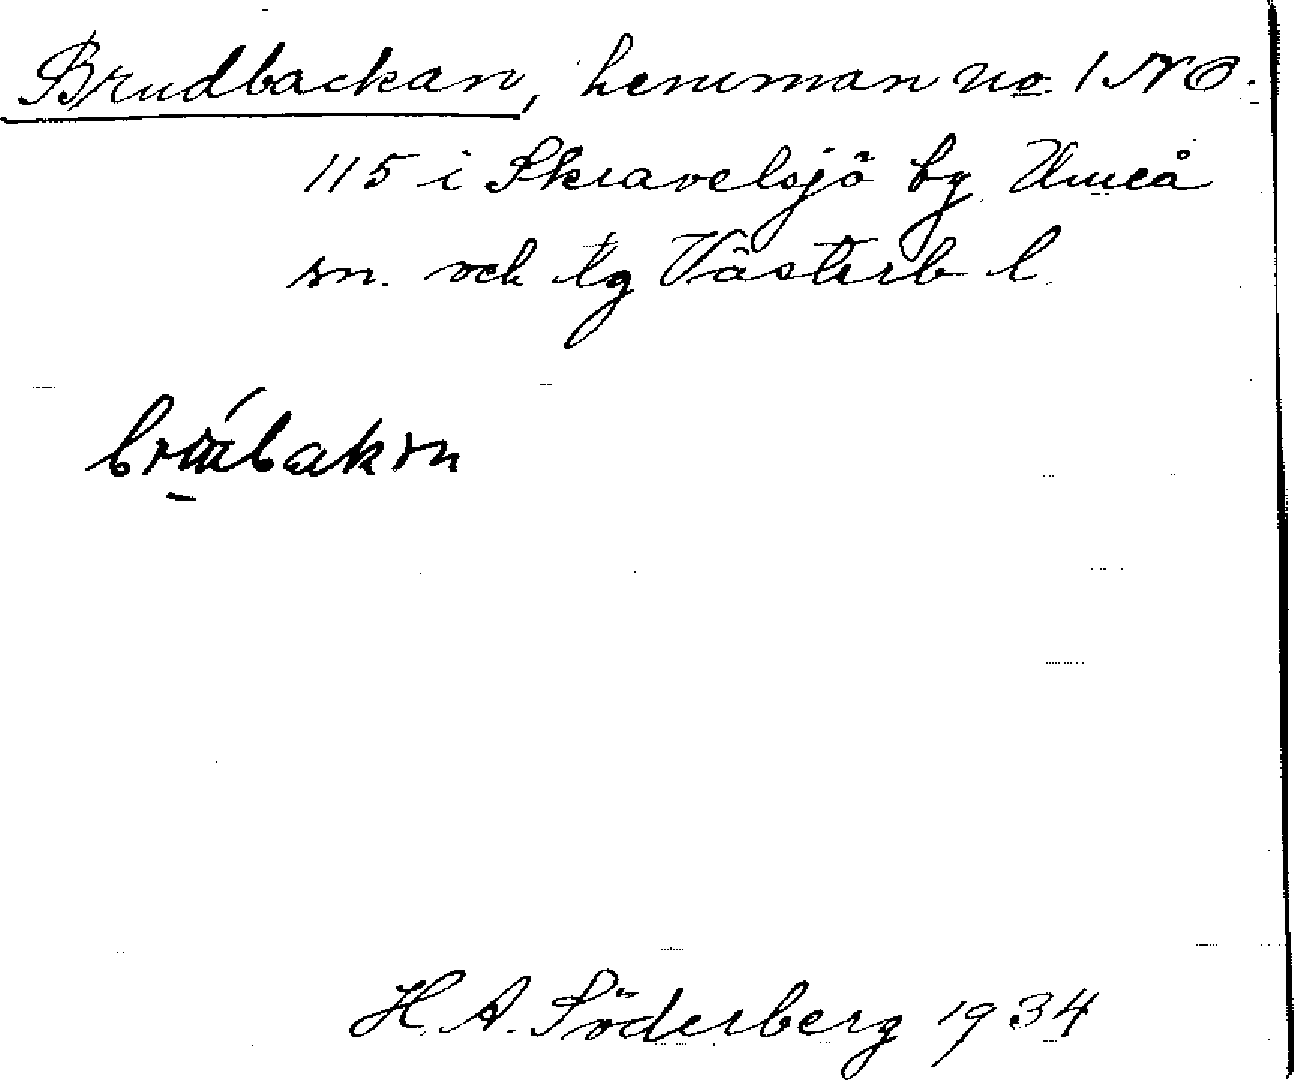 Brudbackan, hemman no 1 N O.
115 i Skravelsjö by Umeå
sn. och tg Västerb l.
H. A. Söderberg 1934